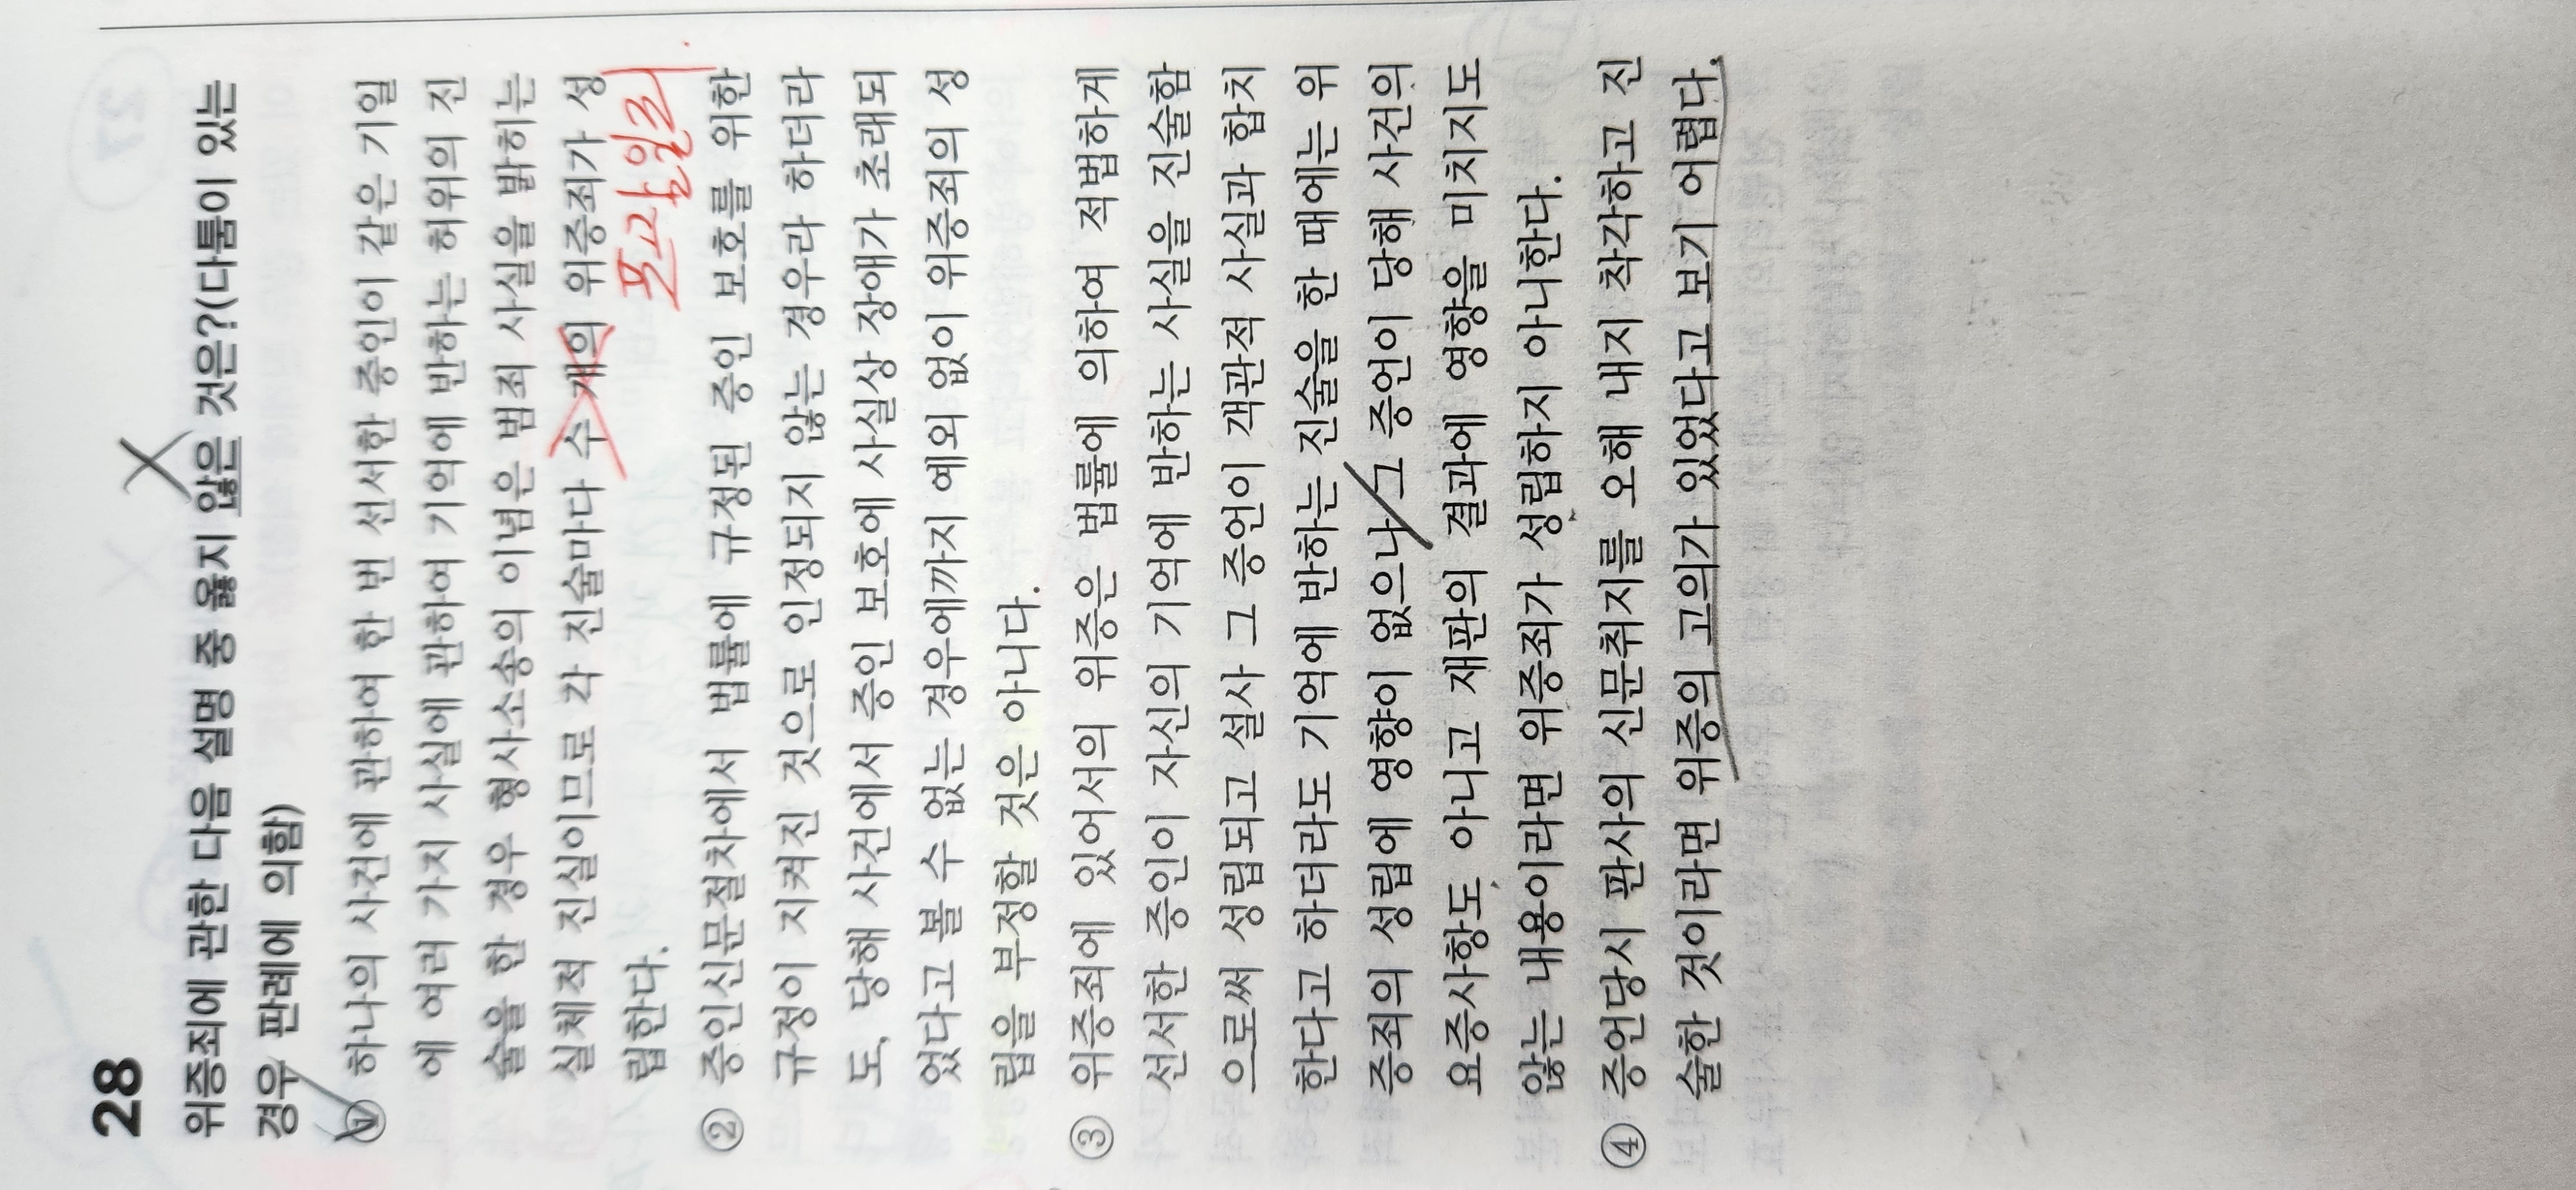 28
위증죄에 관한 다음 설명 중 옳지 않은 것은?(다툼이 있는
경우 판례에 의함)
① 하나의 사건에 관하여 한 번 선서한 증인이 같은 기일
에 여러 가지 사실에 관하여 기억에 반하는 허위의 진
술을 한 경우 형사소송의 이념은 범죄 사실을 밝히는
실체적 진실이므로 각 진술마다 수 개의 위증죄가 성
포괄일죄
립한다.
② 증인신문절차에서 법률에 규정된 증인 보호를 위한
규정이 지켜진 것으로 인정되지 않는 경우라 하더라
도, 당해 사건에서 증인 보호에 사실상 장애가 초래되
었다고 볼 수 없는 경우에까지 예외 없이 위증죄의 성
립을 부정할 것은 아니다.
③ 위증죄에 있어서의 위증은 법률에 의하여 적법하게
선서한 증인이 자신의 기억에 반하는 사실을 진술함
으로써 성립되고 설사 그 증언이 객관적 사실과 합치
한다고 하더라도 기억에 반하는 진술을 한 때에는 위
증죄의 성립에 영향이 없으나 그 증언이 당해 사건의
요증사항도 아니고 재판의 결과에 영향을 미치지도
않는 내용이라면 위증죄가 성립하지 아니한다.
④ 증언당시 판사의 신문취지를 오해 내지 착각하고 진
술한 것이라면 위증의 고의가 있었다고 보기 어렵다.